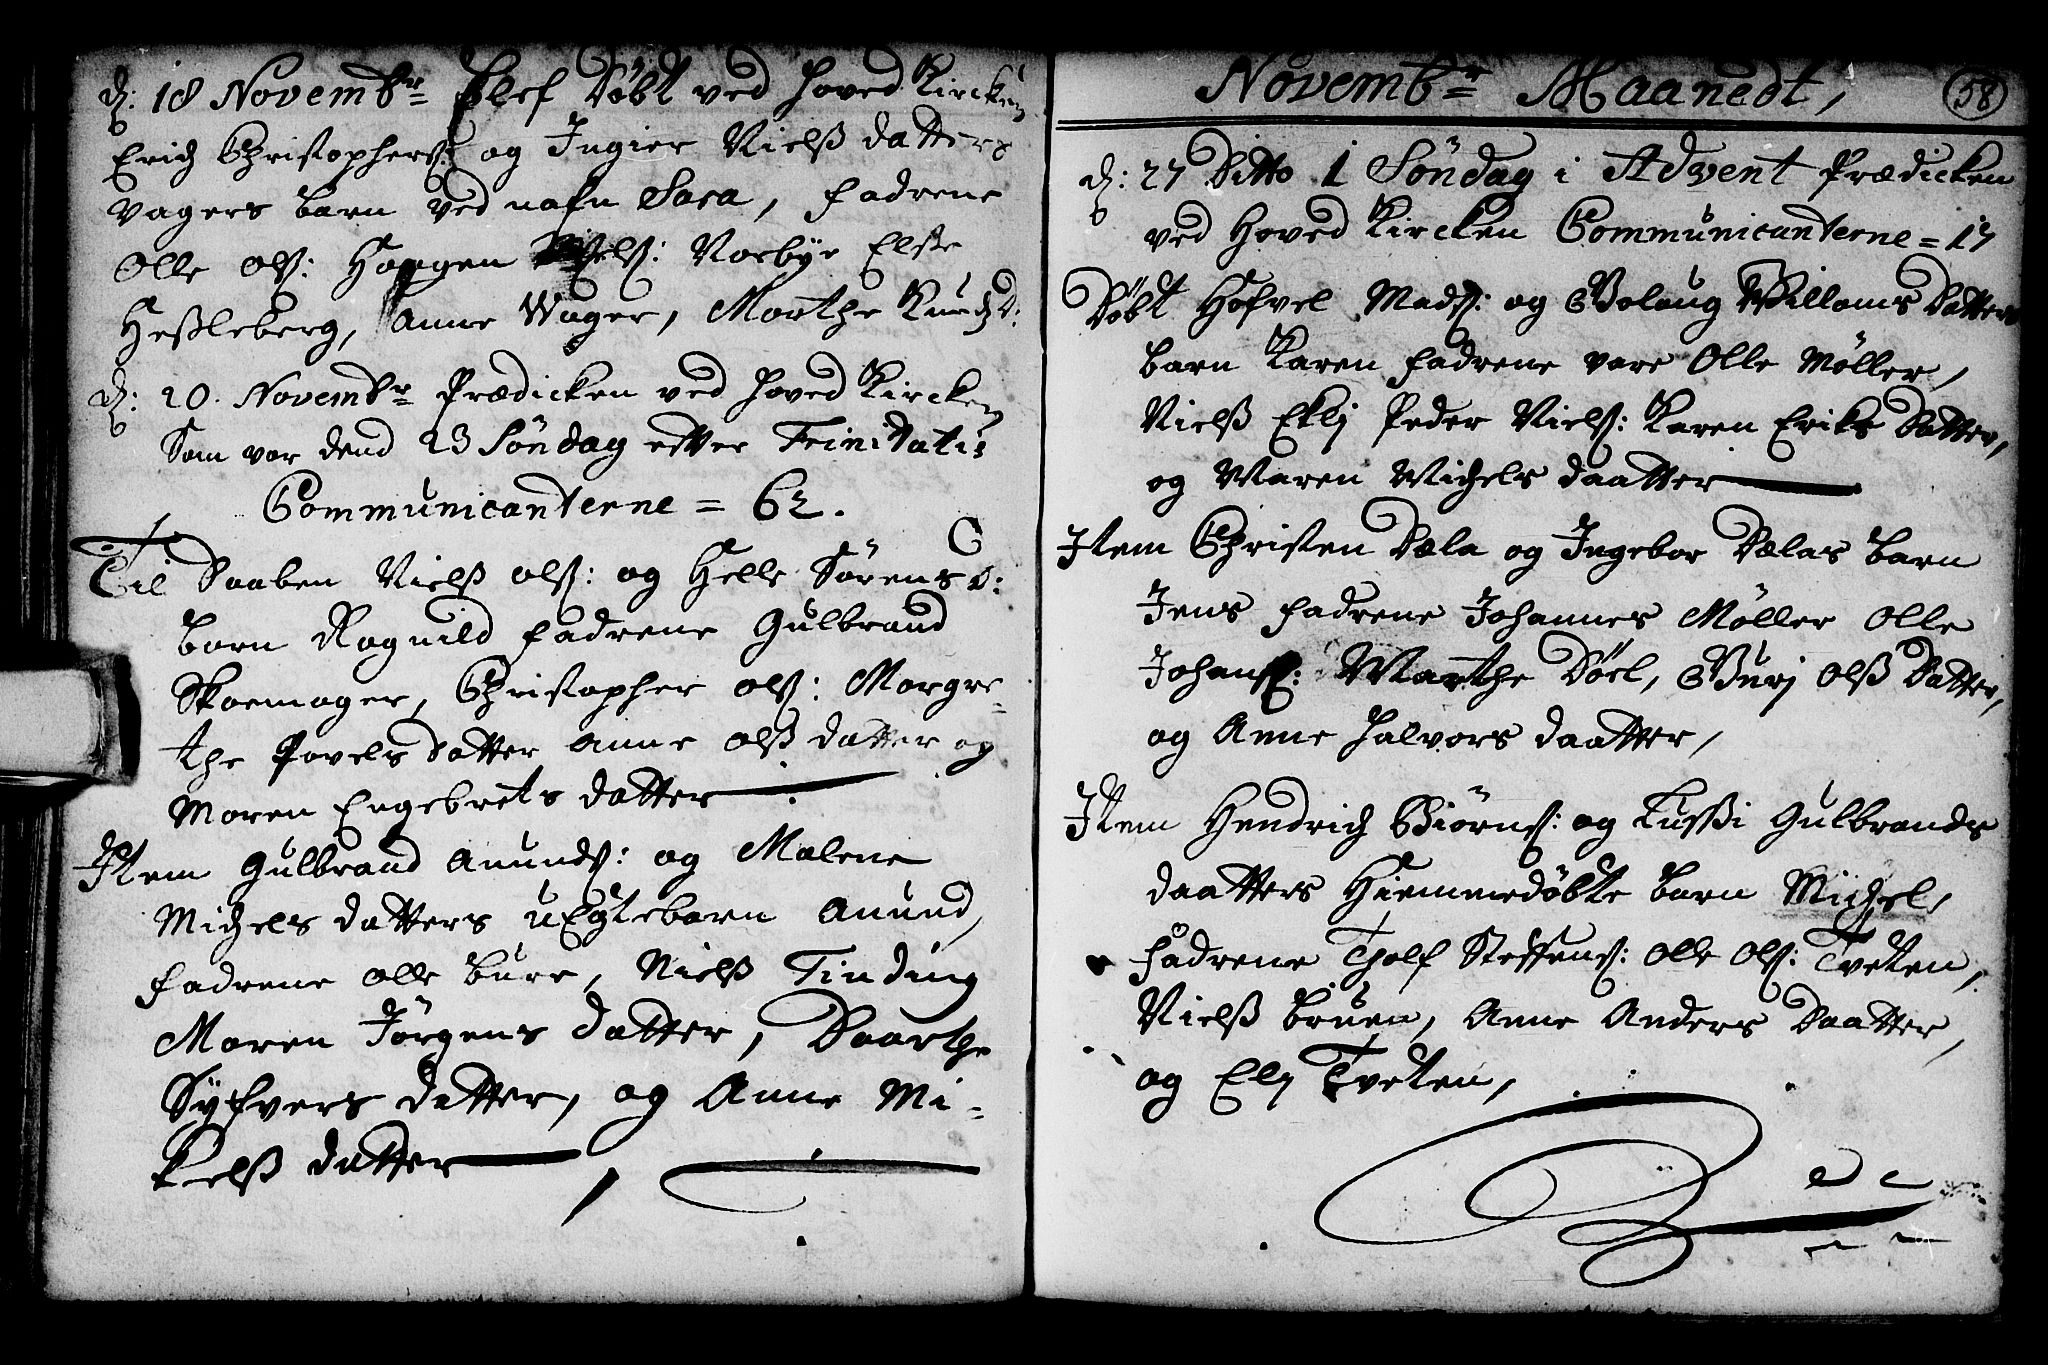 d: 18 Novembr Blef Döbt ved Hoved Kircken
Erich Christophers: og Ingier Nielß datters
Vagers barn ved nafn Sara, fadrene
Olle Ols: Haagen Nels: Norbÿe Else
Heßleberg, Anne Wager, Marthe Knudsd:
d: 20. Novembr Prædicken ved Hoved Kircken
Som var dend 23 Söndag efter Trinitatis
Communicanterne = 62.
Til Daaben Nielß Ols: og Helle Sörens d:
barn Ragnild fadrene Gulbrand
Skoemager, Christopher Ols: Margre-
the Povels datter Anne Olß datter og
Maren Engebrets datter
Item Gulbrand Anunds: og Malene
Michels datters uEgte barn Anund,
fadrene Olle Bure, Nielß Tinding
Maren Jörgens datter, Daarthe
Syfvers datter, og Anne Mi-
kelß datter
Novembr Maanedt,
58
d: 27 Ditto 1 Söndag i Advent Prædicken
ved Hoved Kircken Communicanterne = 17
Döbt Hofvel Mads: og Golaug Willams Datters
barn Karen fadrene vare Olle Möller,
Nielß Eklj Peder Niels: Karen Eriks Datter,
og Maren Michels daatter
Item Christen Dæla og Ingebor Dælas barn
Jens fadrene Johannes Möller Olle
Johans: Marthe Döel, Gurj Olß Datter,
og Anne Halvors daatter,
Item Hendrich Biörns: og Lußi Gulbrands
daatters Hiemmedöbte barn Michel,
fadrene Tholf Steffens: Olle Ols: Tveten,
Nielß Bruen, Anne Anders Daatter,
og Elj Tveten,